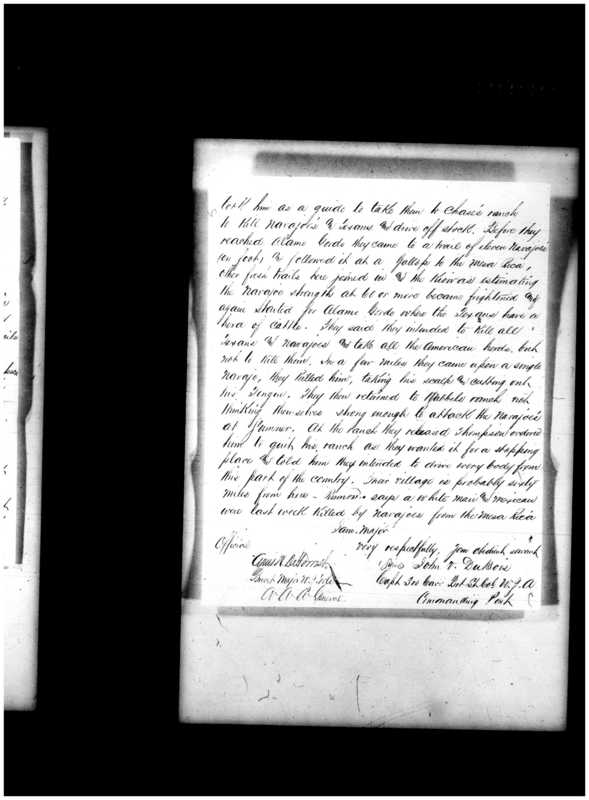 him as a guide to take them to Chase's ranch
to kill Navajoe's & Texans & drive off stock. Before they
reached Alamo Gordo they came to a trail of eleven Navajoe's
(on foot) & followed it at a Gallop to the Mesa Rica,
other fresh trails here joined in & the Kiowas estimating
the Navajoe strength at 60 or more became frightened &
again started for Alamo Gordo where the Texans have a
herd of cattle. They said they intended to kill all
Texans & Navajoes & take all the American herds, but
not to kill them. In a few miles they came upon a single
Navajo, they killed him, taking his scalp & cutting out
his Tongue. They then returned to ranch not
thinking themselves strong enough to attack the Navajoe's
at Sumner. At the ranch they released Thompson ordered
him to quit his ranch as they wanted it for a stopping
place & told him they intended to drive every body from
this part of the country. Their village is probably sixty
miles from here - says a white man & Mexican
were last week killed by Navajoes from the Mesa Rica
I am Major
Official very respectfully, Your obedient servant
John V. DuBois
Capt 3rd Cav Bvt Lt Col U.S.A
A.A.A. General Commanding Post